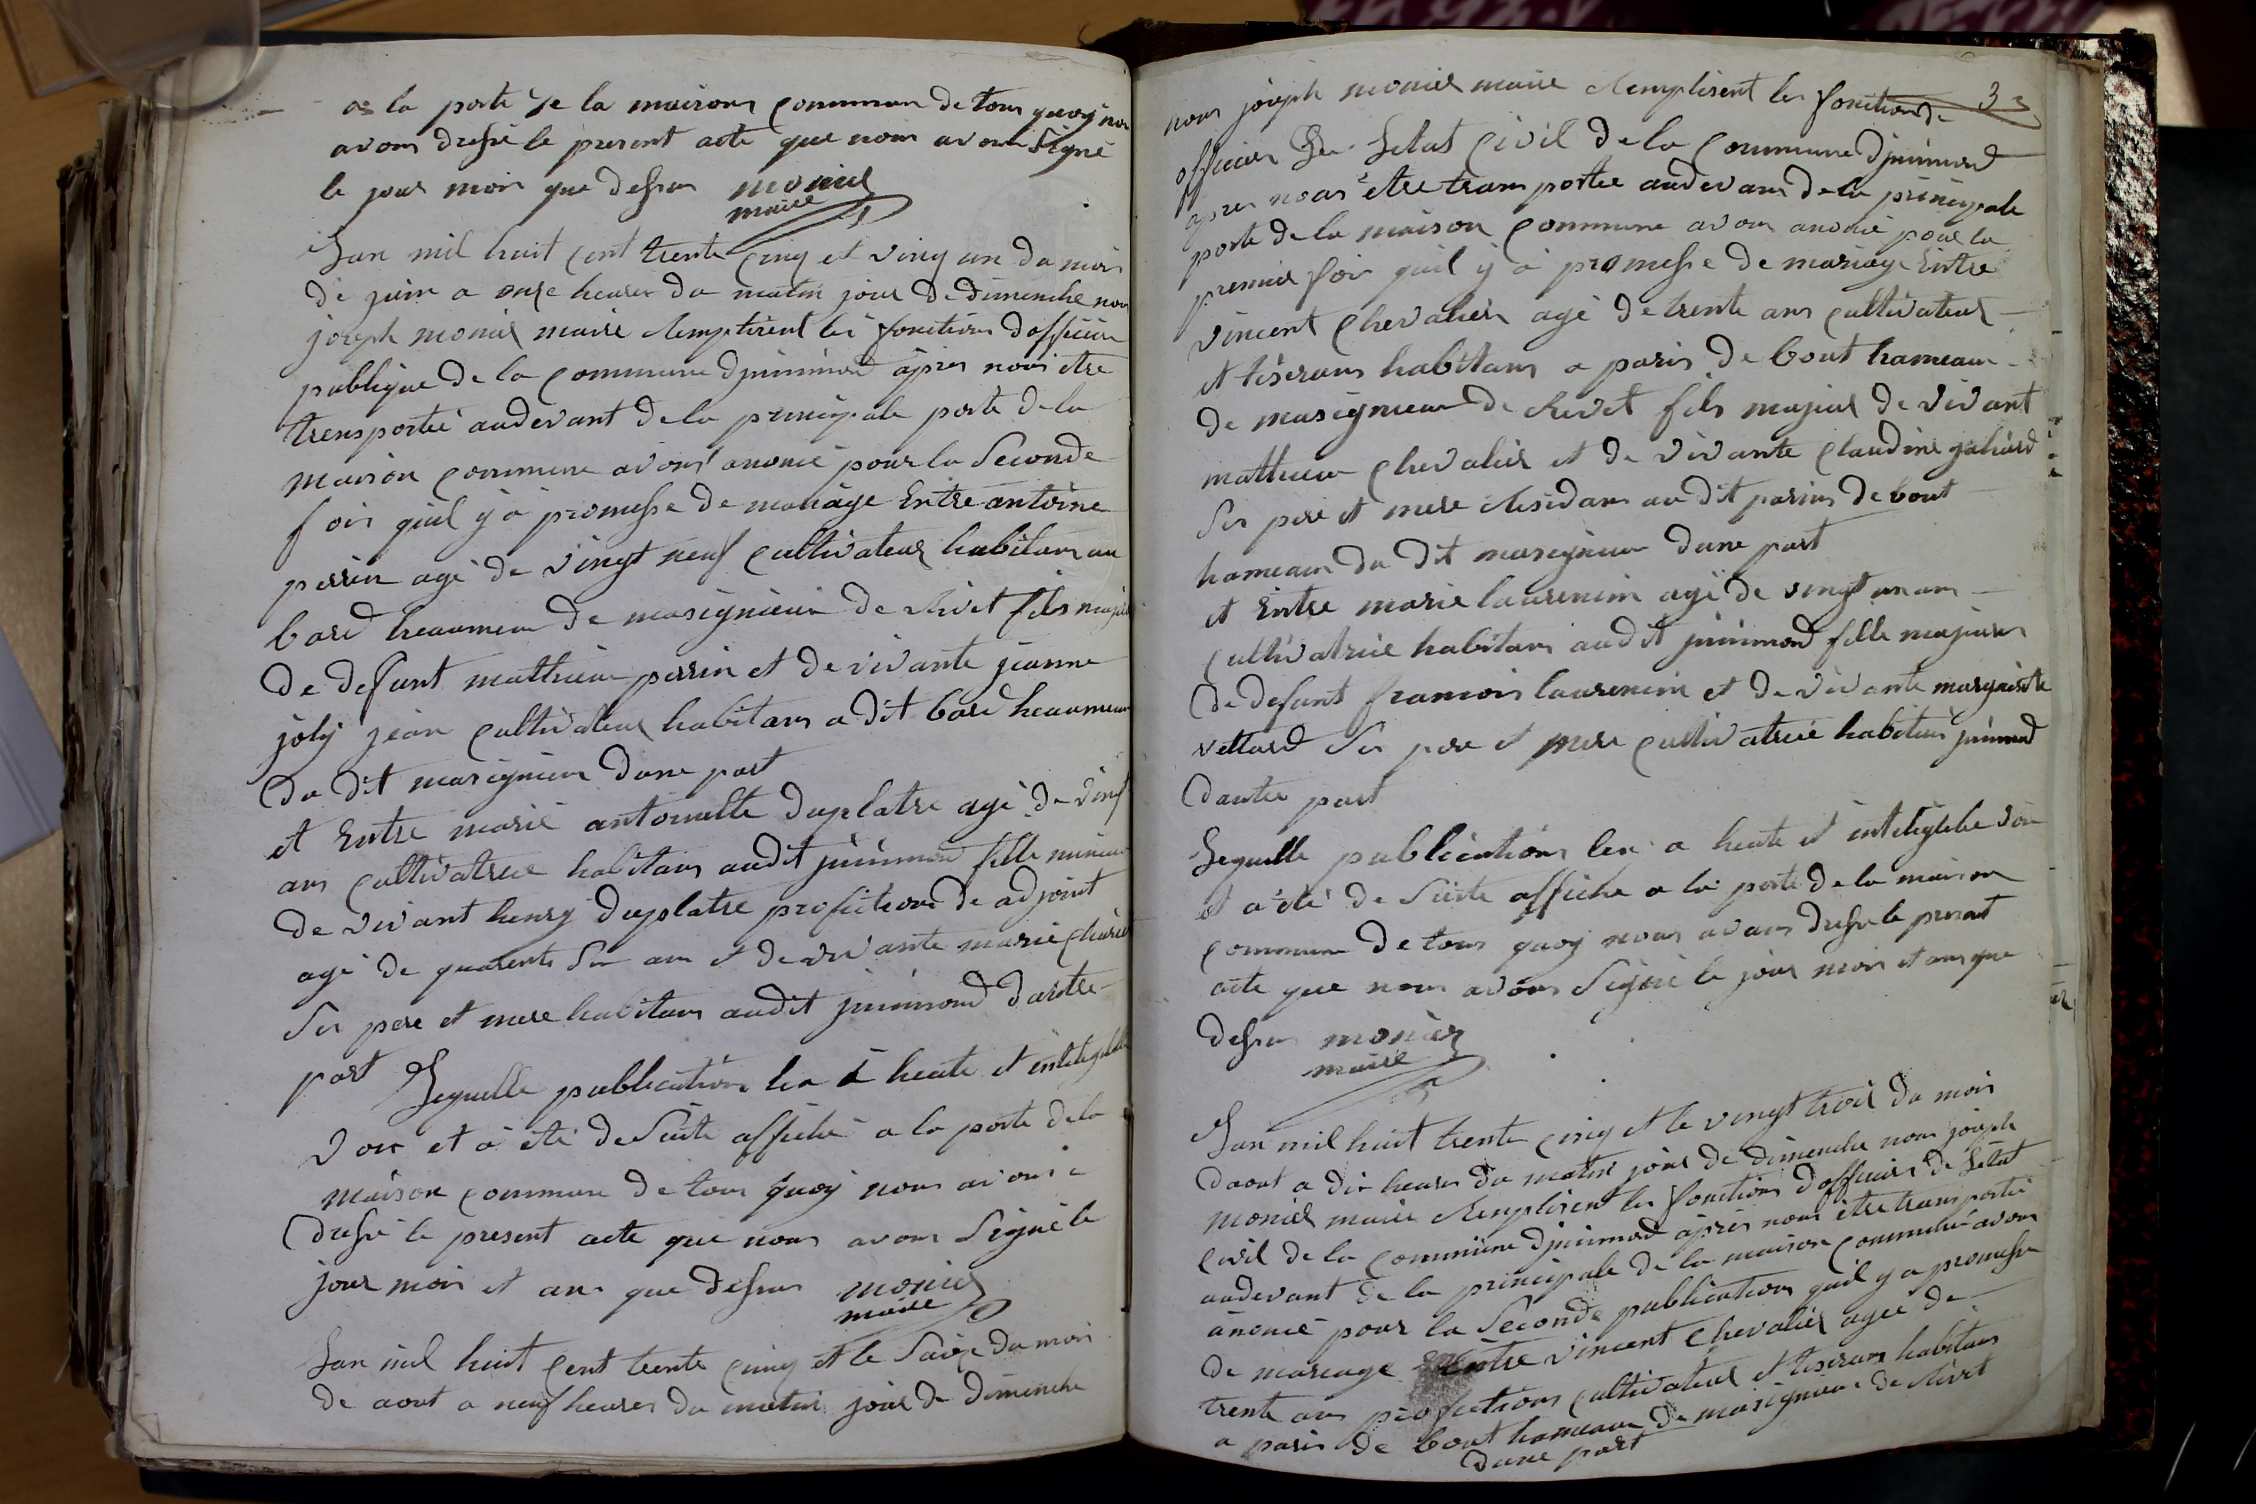 a la porte de la maison commune de tous quoy nou
avons dressé le present acte que nous avons Signé
le jour mois que dessus monier
maire
Lan mil huit cent trente cinq et vingt un du mois
de juin a onze heures du matin jour de dimenche nous
joseph monier maire Remplisent les fonctions dofficier
publique de la commune djzimmond apres nous etre
transportée audevant de la principale porte de la
maison commune avons anoncé pour la Seconde
fois quil y à promesse de mariage Entre antoine
perrin agé de vingt neuf cultivateur habitans au
bard heaumeau de masignieux de Rivet fils majeur
de defunt mathieu perrin et de vivante jeanne
joly jean cultivateur habitans a dit bard heaumeau
du dit masignieux dune part
et Entre marie antoinette duplatre agé de vingt
ans cultivatrice habitans audit jzimmond fille mineur
de vivant henry duplatre profections de adjoint
agé de quarente Six ans et de vivante marie
Ses pere et mere habitans audit jzimmond dautre
part Lequelle publication leu à heute et inteligible
voix et à été de Suite affiché a la porte de la
maison commune de tous quoy nous avons
dressé le present acte que nous avons Signé le
jour mois et ans que dessus monier
maire
Lan mil huit cent trente cinq et le Saize du mois
de aout a neuf heures du matin jour de dimenche
3
nous joseph monier maire Remplisent les fonctions d
officier De Letat Civil de la commune djzimmond
apres nous etre transportée audevans de la principale
porte de la maison commune avons anoncé pour la
premier fois quil y à promesse de mariage Entre
vincent chevalier agé de trente ans cultivateur
et tiserans habitans a paris de bout hameaux
de masignieux de Rivet fils majeur de vivant
mathieux chevalier et de vivante claudine
Ses pere et mere Residans au dit parius de bout
hameaux du dit masignieux dune part
et Entre marie laurencin agé de vingt un ans
cultivatrice habitans audit jzimmond fille majeur
de defunt francois laurencin et de vivante marguerite
vettard Ses pere et mere cultivatrice habitans jzimmond
dautre part
Lequelle publications leu a heute et inteligible voix
et a été de Suite affiche a la porte de la maison
commune de tous quoy nous avans dressé le present
acte que nous avons Signé le jour mois et ans que
dessus monier
maire
Lan mil huit trente cinq et le vingt trois du mois
daout a dix heures du matin jour de dimenche nous joseph
monier maire Remplisent les fonctions dofficier de Letat
civil de la commune djzimmond apres nous etre transportée
audevant de la principale de la maison commune avons
anoncé pour la Seconde publications quil y a promesse
de mariage Entre vincent chevalier agée de
trente ans profections cultivateur et tiserans habitans
a paris de bout hameaux de masignieux de Rivet
dune part